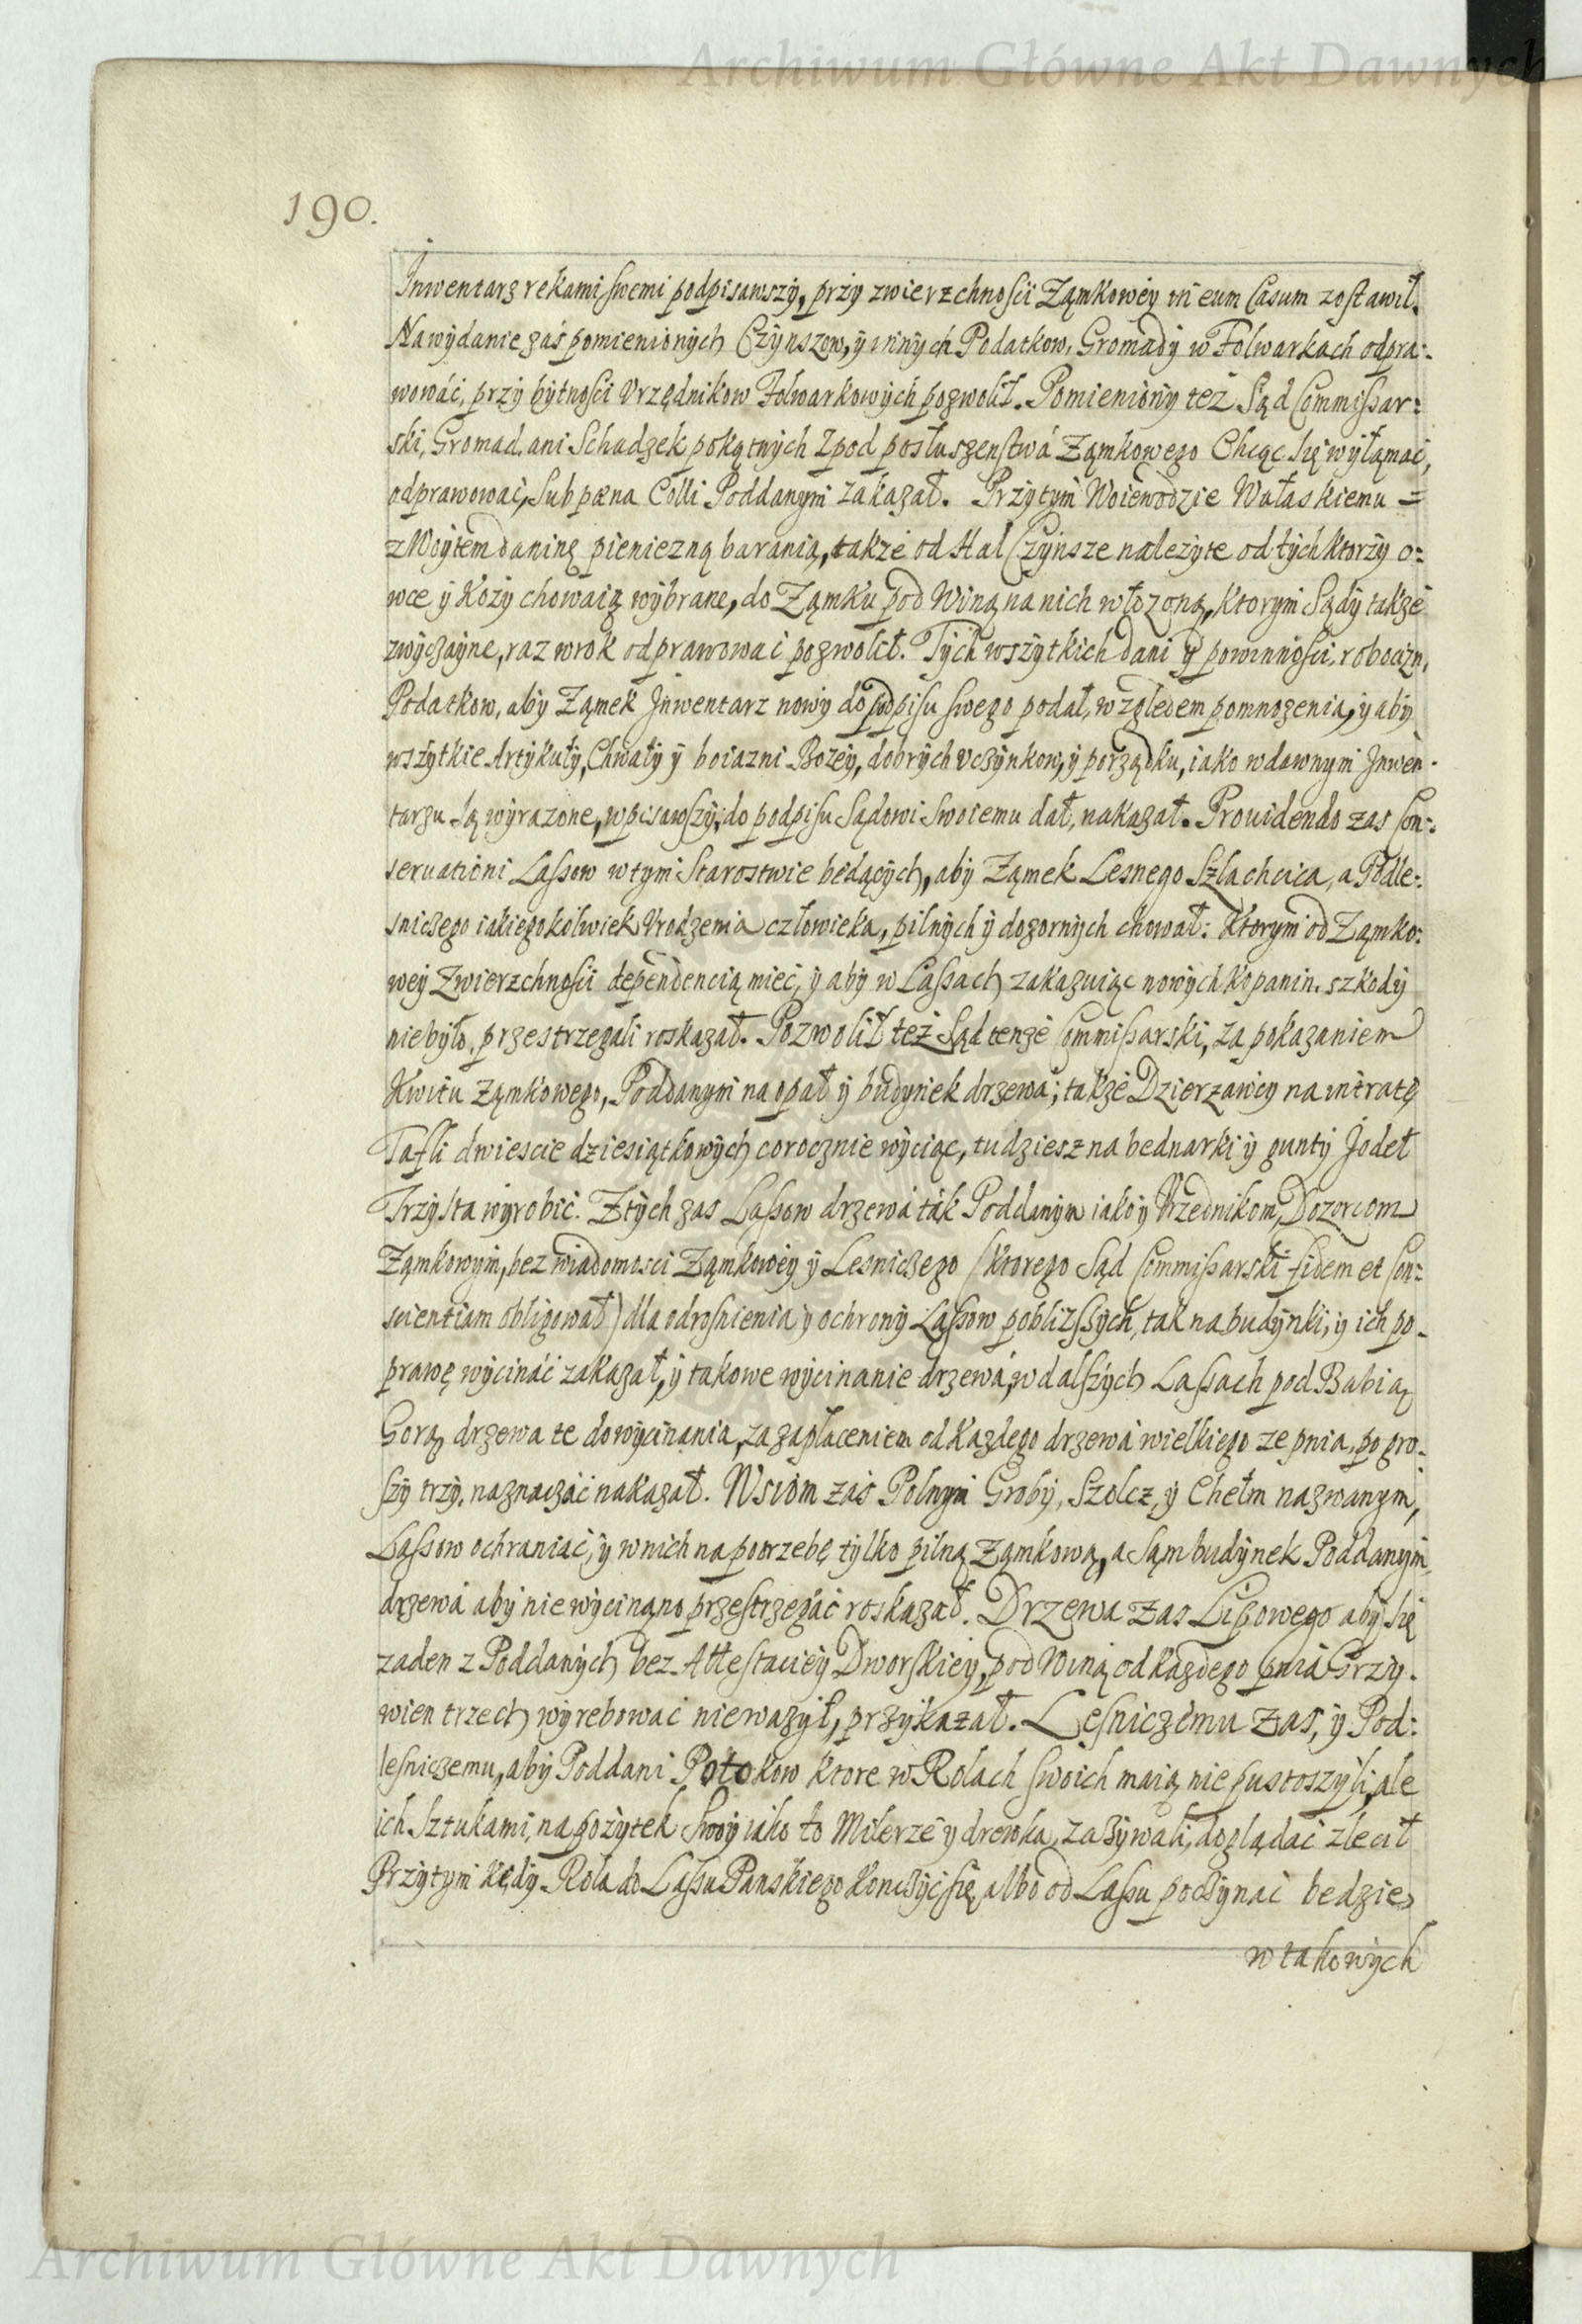 Archiwum Główne Akt Dawnych
190.
Inwentarz rekami swemi podpisawszÿ, przÿ zwierzchnosci Ząmkowéÿ in eum Casum zostawił.
Na wÿdanie zaś pomienionÿch Czÿnszow, ÿ innÿch Podatkow, Gromadÿ w Folwarkach odpra:
wowáć, przÿ bÿtnosci Vrzędnikow Folwarkowÿch pozwolił. Pomienionÿ też Sąd Commissar:
ski, Gromad, ani Schadzek pokątnÿch Zpod posłuszenstwá Ząmkowego Chcąc się wÿłąmać,
odprawować, Sub pæna Colli Poddanÿm zakazał. Przÿtÿm Woiewodzie Wałaskiemu =
z Woÿtem daninę pieniezną baranią, także od Hal Czÿnsze należÿte od tÿch ktorzÿ o:
wce ÿ Kozÿ chowaią wÿbrane, do Ząmku pod Winą na nich włozoną, Ktorÿm Sądÿ także
zwÿczaÿne, raz w rok odprawować pozwolił. Tÿch wszÿtkich dani ÿ powinnosci, robocizn,
Podatkow, abÿ Ząmek Inwentarz nowÿ do podpisu swego podał, względem pomnozenia, ÿ abÿ
wszÿtkie Artÿkułÿ, Chwałÿ ÿ boiazni Bozeÿ, dobrÿch vczÿnkow, ÿ porządku, iako w dawnÿm Inwen-
tarzu są wÿrazone, wpisawszÿ, do podpisu Sądowi Swoiemu dał, nakazał. Prouidendo zas Con:
seruationi Lassow w tÿm Starostwie będącÿch, abÿ Ząmek Lesnego Szlachcica, a Podle:
sniczego iakiegokolwiek Vrodzenia człowieka, pilnÿch ÿ dozornÿch chował: Ktorÿm od Ząmko:
weÿ Zwierzchnosci dependencią mieć, ÿ abÿ w Lassach zakazuiąc nowÿch kopanin, szkodÿ
niebÿło, przestrzegali roskazał. Pozwolił też Sąd tenże Commissarski, za pokazaniem
Kwitu Ząmkowego, Poddanÿm na opał ÿ budÿnek drzewa; także Dzierzawcÿ na intratę
Tafli dwiescie dziesiątkowÿch corocznie wÿciąc, tudziesz na bednarki ÿ guntÿ Jodeł
Trzÿsta wÿrobić. Z tÿch zas Lassow drzewá ták Poddanÿm iako ÿ Vrzednikom, Dozorcom
Ząmkowÿm, bez wiadomosci Ząmkoweÿ ÿ Lesniczego (ktorego Sąd Commissarski fidem et con:
scientiam obligował) dla odrosnienia ÿ ochronÿ Lassow pobliższÿch, tak na budÿnki, ÿ ich po-
prawę wÿcináć zakazał, ÿ takowe wÿcinanie drzewá, w dalszÿch Lassach pod Babią
Gorą, drzewa te do wÿcinania, za zapłaceniem od Kazdego drzewá wielkiego ze pnia, po gro-
szÿ trzÿ, naznaczáć nakazał. Wsiom záś Polnÿm Grobÿ, Szolcz, ÿ Chełm nazwanÿm,
Lassow ochraniać, ÿ w nich na potrzebę tÿlko pilną Ząmkową, a Sąm budÿnek Poddanÿm,
drzewá abÿ nie wÿcinąno przestrzegáć roskazał. Drzewa zas Lipowego abÿ się
zaden z Poddanÿch bez Attestacieÿ Dworskieÿ, pod Winą od kazdego pniá Grzÿ-
wien trzech wÿrebować niewazÿł, przÿkazał. Lesniczemu zas, ÿ Pod:
lesniczemu, abÿ Poddani Potokow ktore w Rolach swoich maią nie pustoszÿli, ale
ich Sztukami, na pożÿtek Swoÿ iáko to Milerze ÿ drewka, zazÿwali, doglądać zlecił
Przÿtÿm Kędÿ Rola do Lassu Panskiego Konczÿć się, albo od Lassu poczÿnać bedzie,
w takowÿch
Archiwum Główne Akt Dawnych